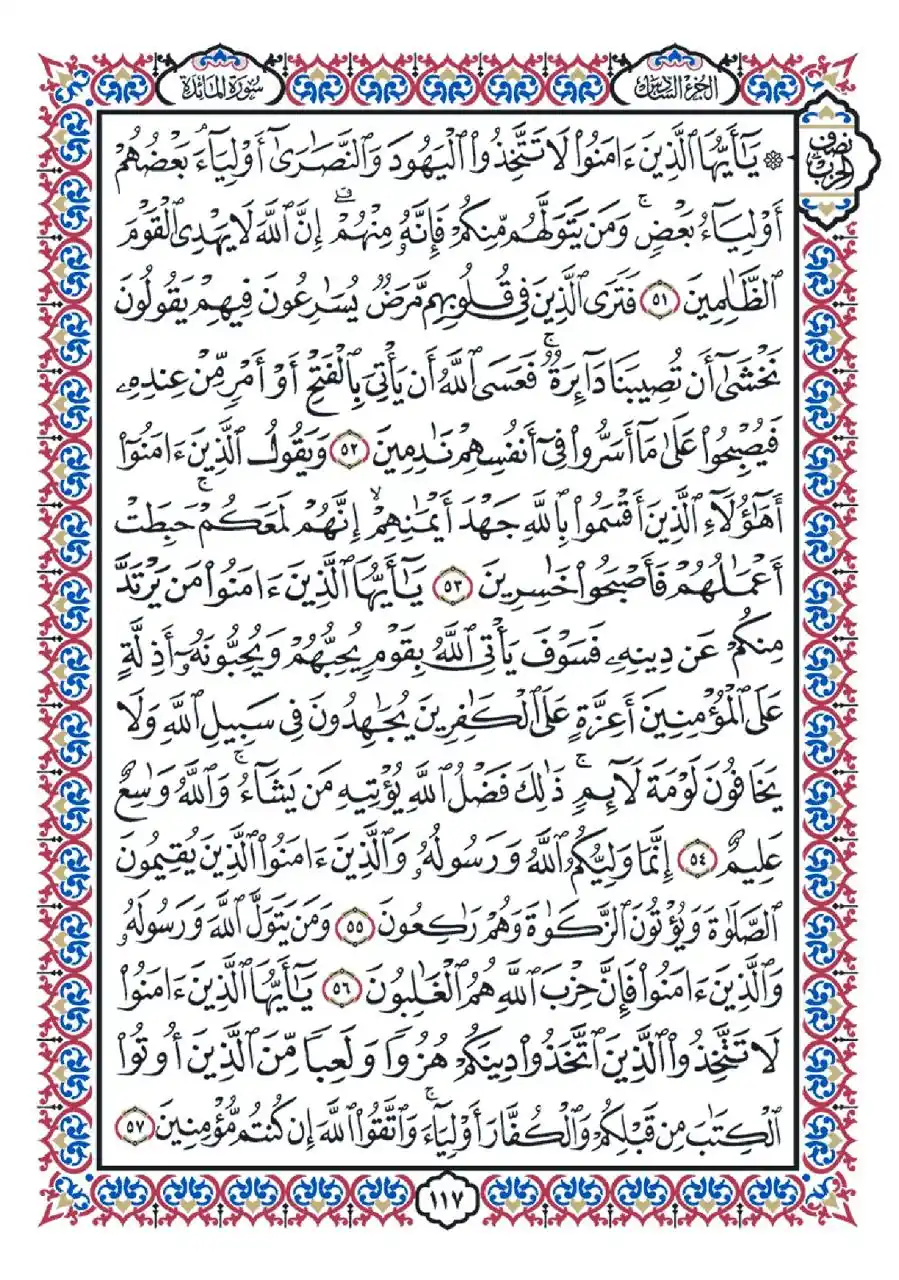 الجزء السادس
سورة المائدة
نصف
الحزب
۞ يَـٰٓأَيُّهَا ٱلَّذِينَ ءَامَنُوا۟ لَا تَتَّخِذُوا۟ ٱلْيَهُودَ وَٱلنَّصَـٰرَىٰٓ أَوْلِيَآءَ ۘ بَعْضُهُمْ
أَوْلِيَآءُ بَعْضٍ ۚ وَمَن يَتَوَلَّهُم مِّنكُمْ فَإِنَّهُۥ مِنْهُمْ ۗ إِنَّ ٱللَّهَ لَا يَهْدِى ٱلْقَوْمَ
ٱلظَّـٰلِمِينَ ٥١ فَتَرَى ٱلَّذِينَ فِى قُلُوبِهِم مَّرَضٌ يُسَـٰرِعُونَ فِيهِمْ يَقُولُونَ
نَخْشَىٰٓ أَن تُصِيبَنَا دَآئِرَةٌ ۚ فَعَسَى ٱللَّهُ أَن يَأْتِىَ بِٱلْفَتْحِ أَوْ أَمْرٍ مِّنْ عِندِهِۦ
فَيُصْبِحُوا۟ عَلَىٰ مَآ أَسَرُّوا۟ فِىٓ أَنفُسِهِمْ نَـٰدِمِينَ ٥٢ وَيَقُولُ ٱلَّذِينَ ءَامَنُوٓا۟
أَهَـٰٓؤُلَآءِ ٱلَّذِينَ أَقْسَمُوا۟ بِٱللَّهِ جَهْدَ أَيْمَـٰنِهِمْ ۙ إِنَّهُمْ لَمَعَكُمْ ۚ حَبِطَتْ
أَعْمَـٰلُهُمْ فَأَصْبَحُوا۟ خَـٰسِرِينَ ٥٣ يَـٰٓأَيُّهَا ٱلَّذِينَ ءَامَنُوا۟ مَن يَرْتَدَّ
مِنكُمْ عَن دِينِهِۦ فَسَوْفَ يَأْتِى ٱللَّهُ بِقَوْمٍ يُحِبُّهُمْ وَيُحِبُّونَهُۥٓ أَذِلَّةٍ
عَلَى ٱلْمُؤْمِنِينَ أَعِزَّةٍ عَلَى ٱلْكَـٰفِرِينَ يُجَـٰهِدُونَ فِى سَبِيلِ ٱللَّهِ وَلَا
يَخَافُونَ لَوْمَةَ لَآئِمٍ ۚ ذَٰلِكَ فَضْلُ ٱللَّهِ يُؤْتِيهِ مَن يَشَآءُ ۚ وَٱللَّهُ وَٰسِعٌ
عَلِيمٌ ٥٤ إِنَّمَا وَلِيُّكُمُ ٱللَّهُ وَرَسُولُهُۥ وَٱلَّذِينَ ءَامَنُوا۟ ٱلَّذِينَ يُقِيمُونَ
ٱلصَّلَوٰةَ وَيُؤْتُونَ ٱلزَّكَوٰةَ وَهُمْ رَٰكِعُونَ ٥٥ وَمَن يَتَوَلَّ ٱللَّهَ وَرَسُولَهُۥ
وَٱلَّذِينَ ءَامَنُوا۟ فَإِنَّ حِزْبَ ٱللَّهِ هُمُ ٱلْغَـٰلِبُونَ ٥٦ يَـٰٓأَيُّهَا ٱلَّذِينَ ءَامَنُوا۟
لَا تَتَّخِذُوا۟ ٱلَّذِينَ ٱتَّخَذُوا۟ دِينَكُمْ هُزُوًا وَلَعِبًا مِّنَ ٱلَّذِينَ أُوتُوا۟
ٱلْكِتَـٰبَ مِن قَبْلِكُمْ وَٱلْكُفَّارَ أَوْلِيَآءَ ۚ وَٱتَّقُوا۟ ٱللَّهَ إِن كُنتُم مُّؤْمِنِينَ ٥٧
١١٧